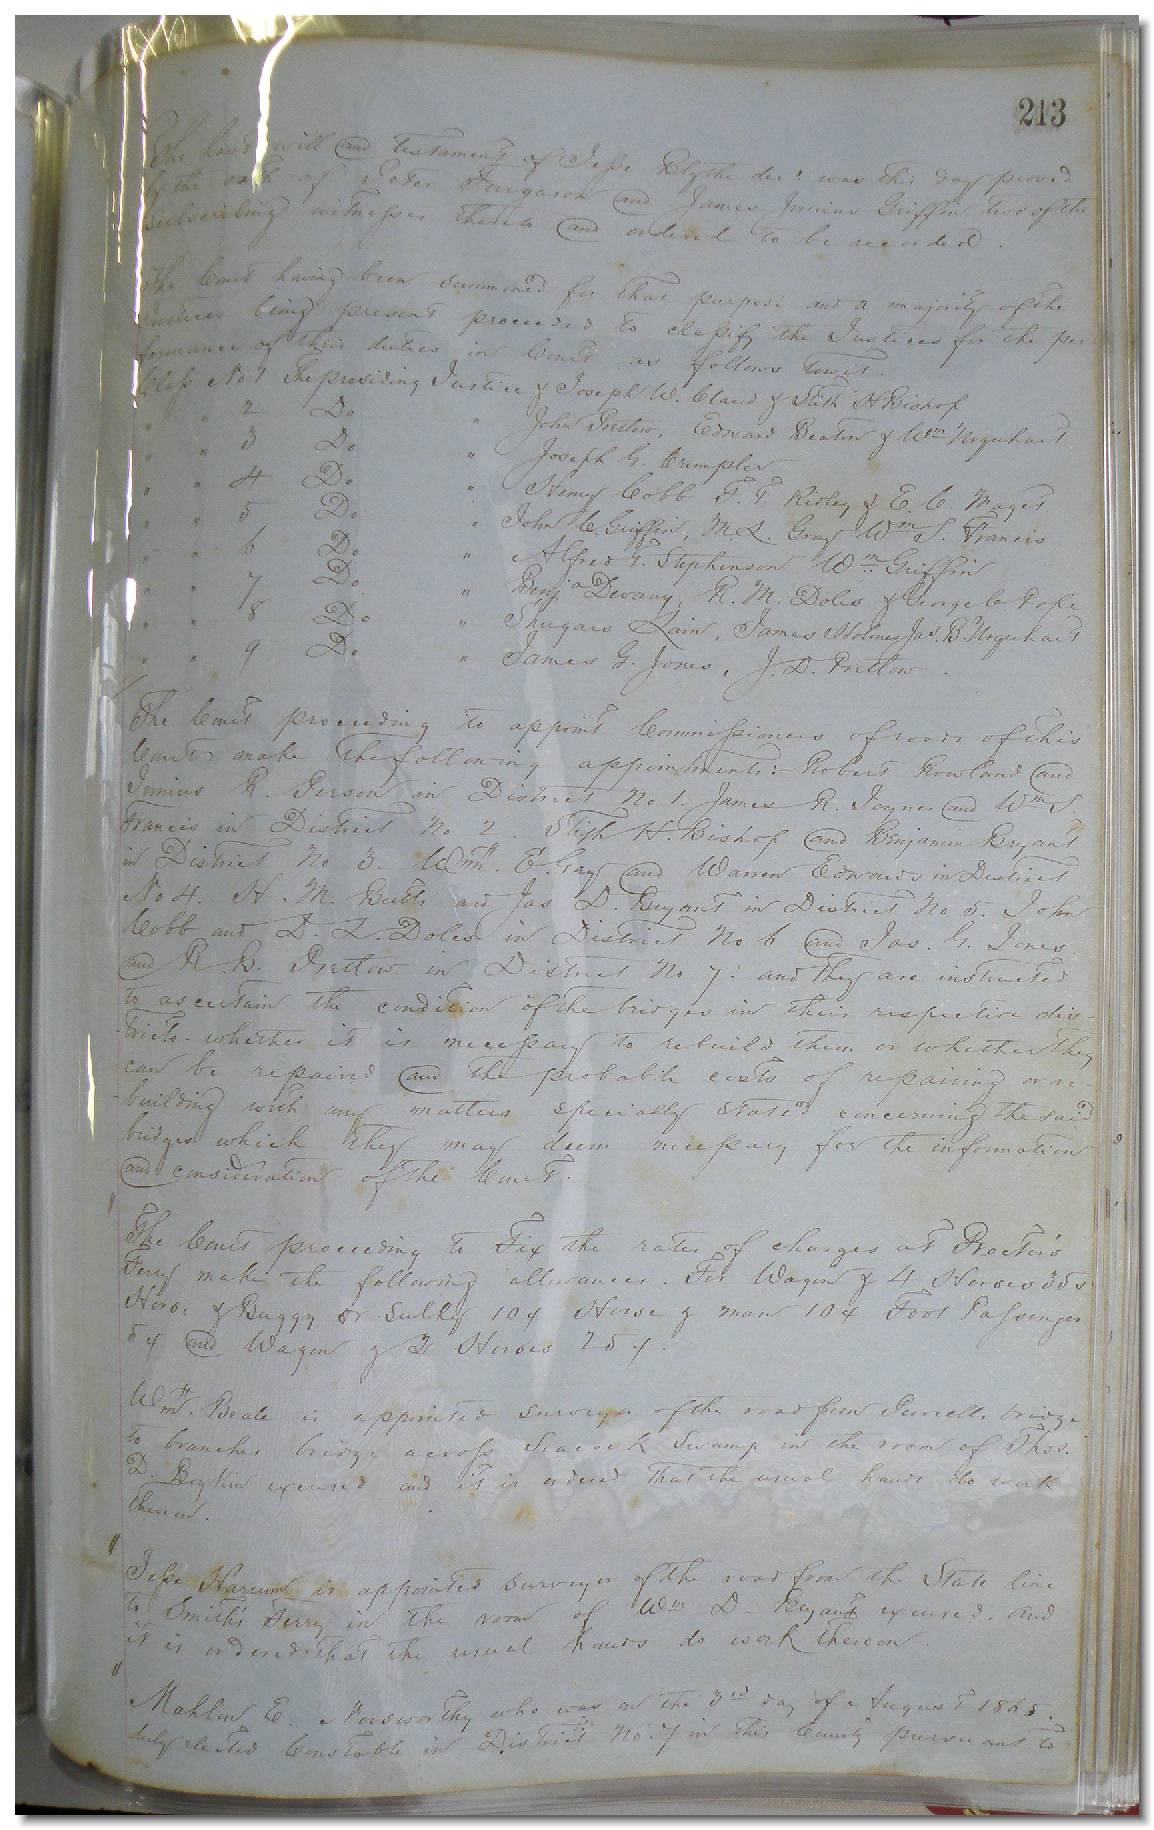 213
The last will and testament of Jesse Blythe dec'd was this day proved
by the oath of Peter Furgason and James Junius Griffin two of the
subscribing witnesses thereto and ordered to be recorded.
The Court having been summoned for that purpose and a majority of the
Justices being present proceeded to classify the Justices for the per-
formance of their duties in Court as follows towit.
Class No 1 The presiding Justice & Joseph W. Claud & Stith H Bishop
" " 2 Do " John Pretlow, Edward Beaton & Wm Urquhart
" " 3 Do " Joseph G. Crumpler
" " 4 Do " Henry Cobb F. T. Ridley & E. C. Mayes
" " 5 Do " John C. Griffin, M. L. Gray Wm S. Francis
" " 6 Do " Alfred T. Stephenson Wm Griffin
" " 7 Do " Benja Devany, R. M. Doles & George C Pope
" " 8 Do " Shugars Lain, James Holmes Jas. B. Urquhart
" " 9 Do " James G. Jones, J. D. Pretlow.
The Court proceeding to appoint Commissioners of roads of this
Court make the following appointments:- Robert Rowland and
Junius R. Person in District No 1. James R. Joyner and Wm S.
Francis in District No 2. Stith H. Bishop and Benjamin Bryant
in District No 3. Wm E. Gay and Warren Edwards in District
No 4. H. M. Butts and Jas D. Bryant in District No 5. John
Cobb and D. L. Doles in District No 6 and Jas. G. Jones
and R. B. Pretlow in District No 7: and they are instructed
to ascertain the condition of the bridges in their respective dis-
tricts - whether it is necessary to rebuild them or whether they
can be repaired and the probable costs of repairing or re-
building with any matters specially stated concerning the said
bridges which they may deem necessary for the information
and consideration of the Court.
The Court proceeding to Fix the rates of charges at Proctor's
Ferry make the following allowances. For Wagon & 4 Horses 35¢
Horse & Buggy or Sulky 10¢ Horse & man 10¢ Foot Passenger
5¢ and Wagon & 2 Horses 25¢.
Wm H. Beale is appointed surveyor of the road from bridge
to branches bridge across Seacock Swamp in the room of Thos.
D. Boykin excused and it is ordered that the usual hands do work
thereon.
Jesse Harcum is appointed surveyor of the road from the State line
to Smith's Ferry in the room of Wm D. Bryant excused. and
it is ordered that the usual hands do work thereon.
Mahlon E. Norsworthy who was on the 3rd day of August 1865.
duly elected Constable in District No. 7 in this County pursuant to